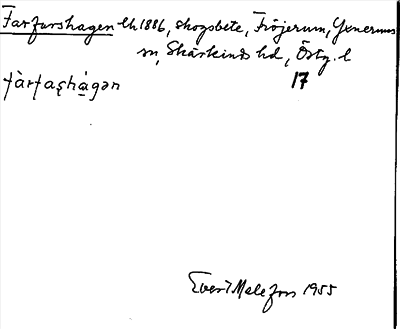 Farfarshagen Lh 1886, skogsbete, Fröjerum, Yxnerums
sn, Skärkinds hd, Östg. l
17
fàrfaʂhá̱gən
Evert Melefors 1955